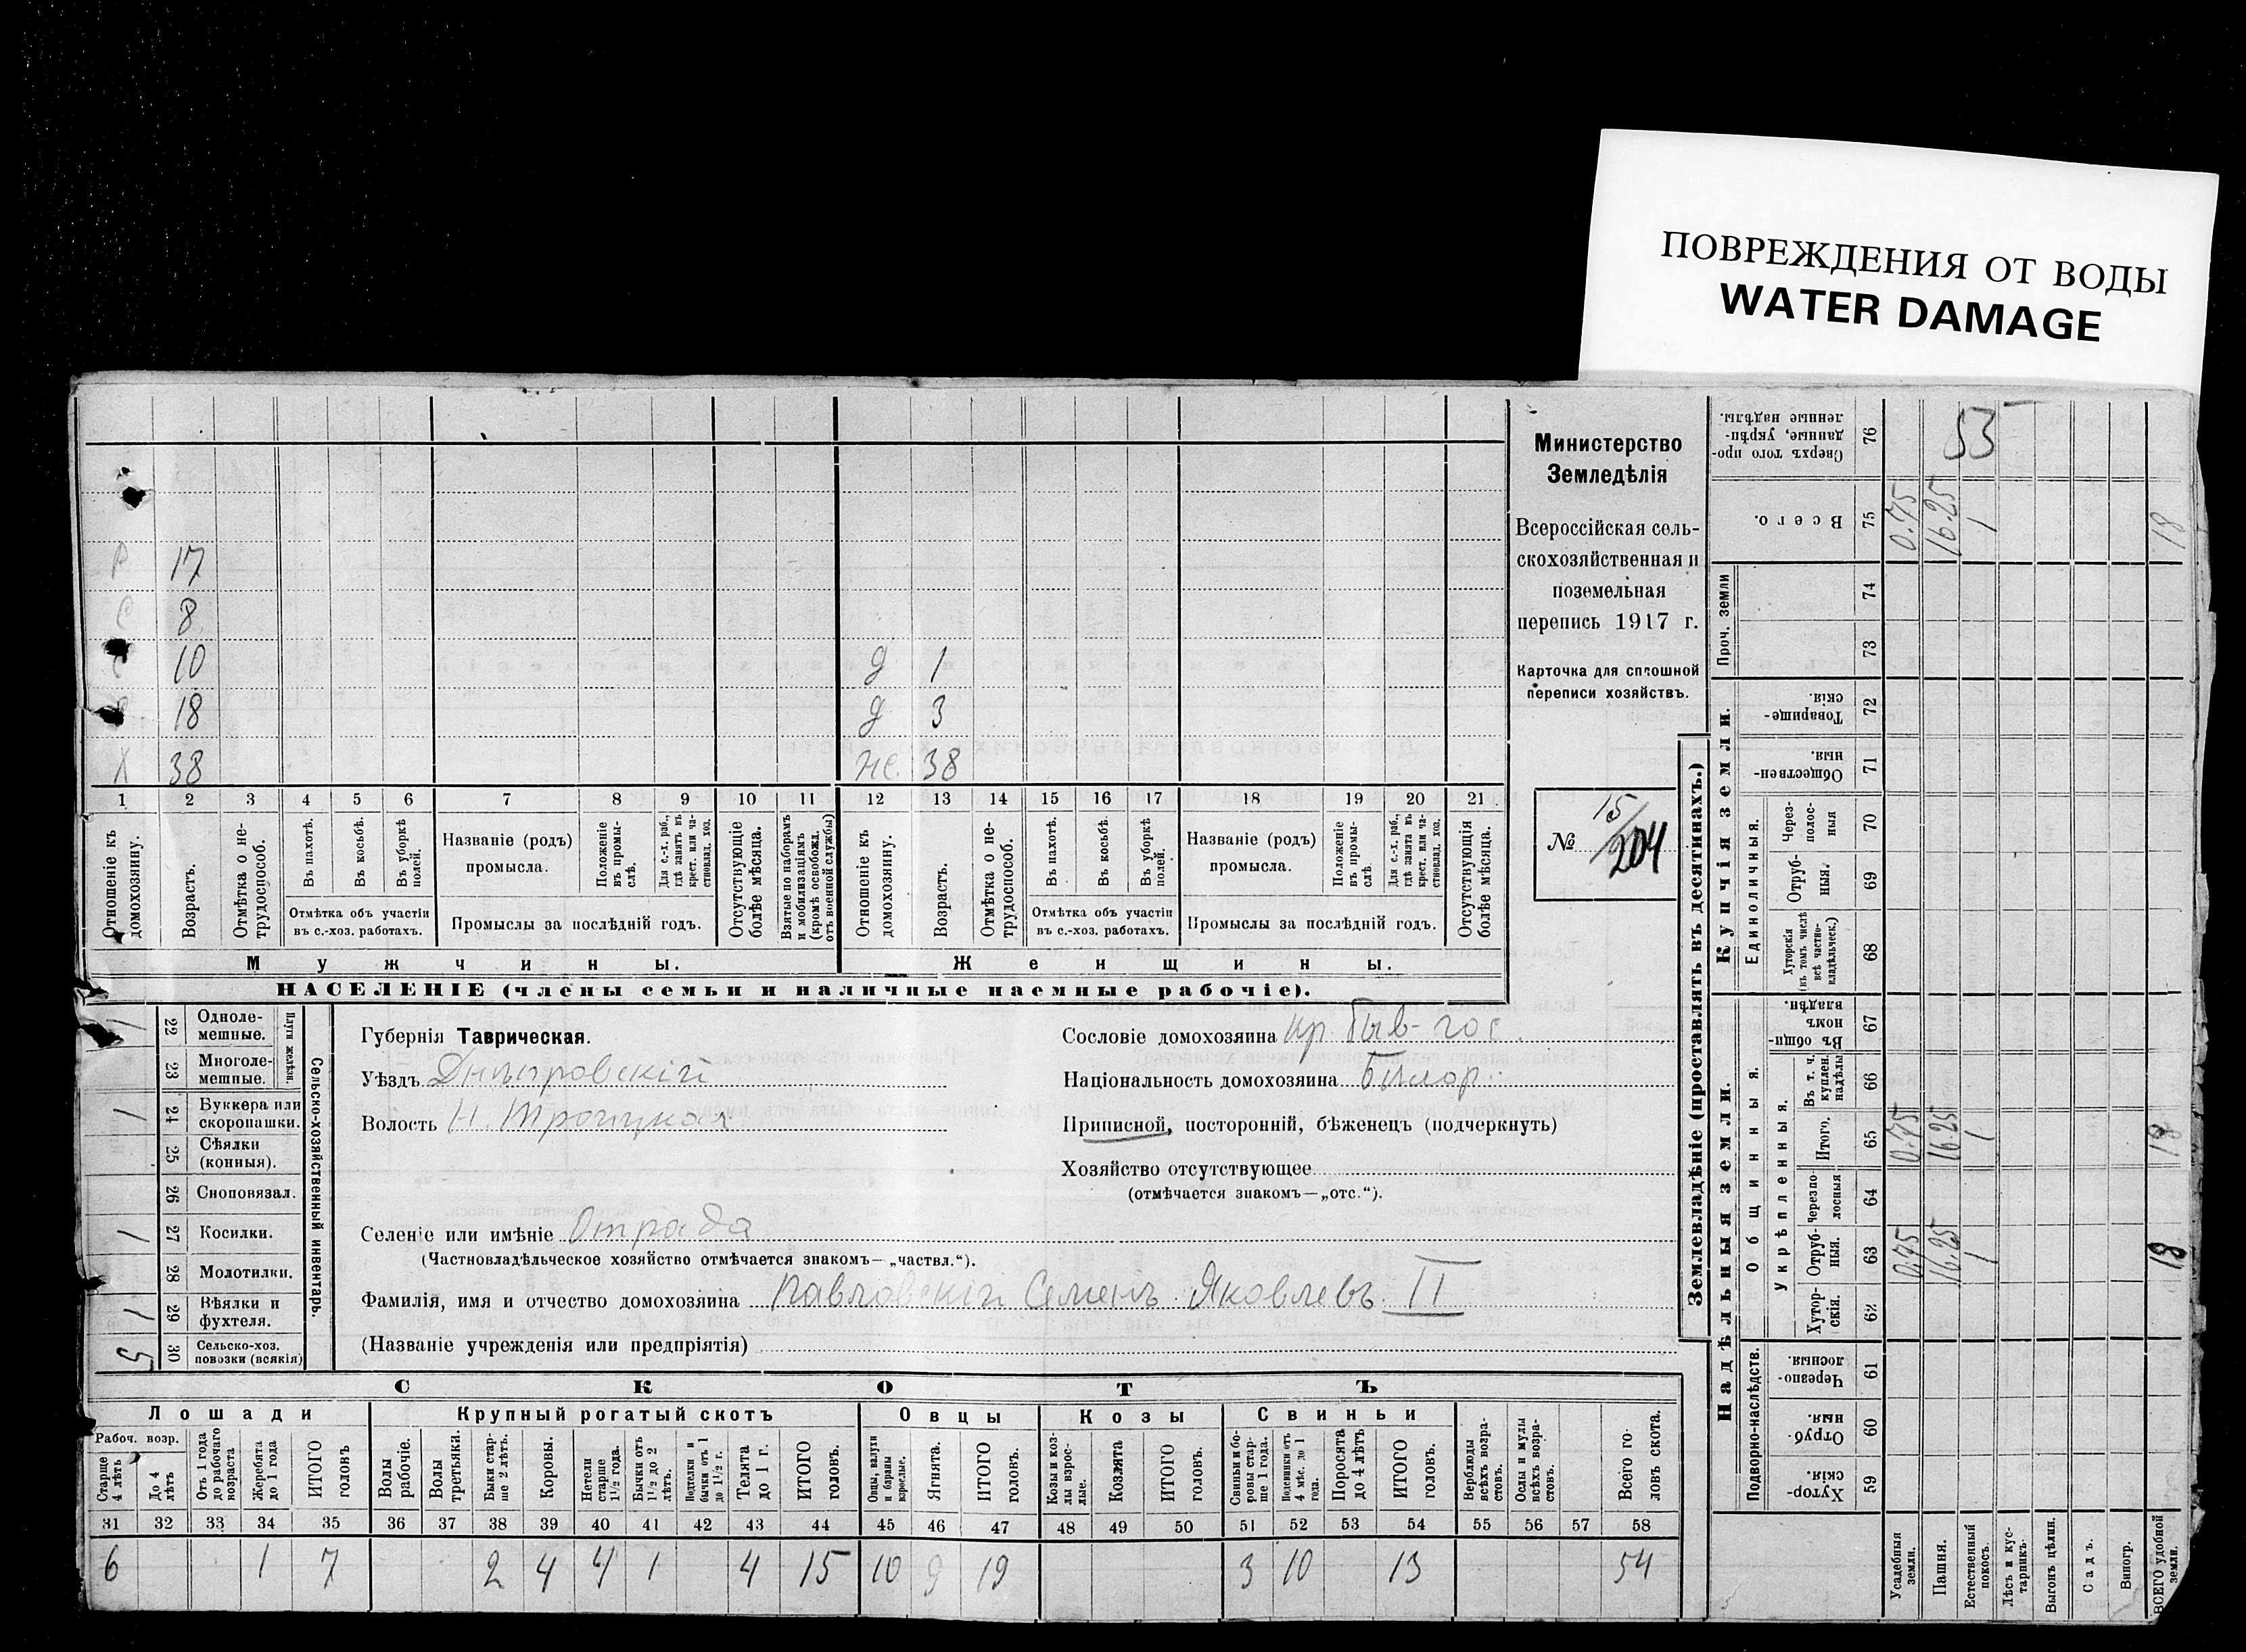 ПОВРЕЖДЕНИЯ ОТ ВОДЫ
WATER DAMAGE
Министерство
Земледѣлія
Всероссійская сель-
скохозяйственная и
поземельная
перепись 1917 г.
Карточка для сплошной
переписи хозяйствъ.
№ 15/204
Р 17
С 8
10
18
Х 38
д 1
д 3
же. 38
1 2 3 4 5 6 7 8 9 10 11 12 13 14 15 16 17 18 19 20 21
Отношеніе къ домохозяину.
Возрастъ.
Отмѣтка о не-трудоспособ.
Въ пахотѣ.
Въ косьбѣ.
Въ уборкѣ полей.
Отмѣтка объ участіи
въ с.-хоз. работахъ.
Названіе (родъ)
промысла.
Положеніе въ промы-слѣ.
Для с.-х. раб., гдѣ занятъ въ крест. или ча-стновлад. хоз.
Промыслы за послѣдній годъ.
Отсутствующіе болѣе мѣсяца.
Взятые по наборамъ и мобилизаціямъ (кромѣ освобожд. отъ военной службы)
Отношеніе къ домохозяину.
Возрастъ.
Отмѣтка о не-трудоспособ.
Въ пахотѣ.
Въ косьбѣ.
Въ уборкѣ полей.
Отмѣтка объ участіи
въ с.-хоз. работахъ.
Названіе (родъ)
промысла.
Положеніе въ промы-слѣ
Для с.-х. раб., гдѣ занята въ крест. или ча-стновлад. хоз.
Промыслы за послѣдній годъ.
Отсутствующія болѣе мѣсяца.
Мужчины.
Женщины.
НАСЕЛЕНІЕ (члены семьи и наличные наемные рабочіе).
Сельско-хозяйственный инвентарь.
Плуги желѣзн.
1 22 Одноле-мешные.
23 Многоле-мешные.
1 24 Буккера или скоропашки.
25 Сѣялки (конныя).
26 Сноповязал.
1 27 Косилки.
28 Молотилки.
1 29 Вѣялки и фухтеля.
5 30 Сельско-хоз. повозки (всякія)
Губернія Таврическая.
Уѣздъ Днѣпровскій
Волость Н. Троицкая
Селеніе или имѣніе Отрада
(Частновладѣльческое хозяйство отмѣчается знакомъ—„частвл.“).
Фамилія, имя и отчество домохозяина Павловскій Семенъ Яковлевъ II
(Названіе учрежденія или предпріятія)
Сословіе домохозяина кр. быв-гос.
Національность домохозяина Бѣлор.
Приписной, посторонній, бѣженецъ (подчеркнуть)
Хозяйство отсутствующее
(отмѣчается знакомъ—„отс.“).
СКОТЪ
Лошади
Крупный рогатый скотъ
Овцы
Козы
Свиньи
Рабоч. возр.
Старше 4 лѣтъ
До 4 лѣтъ
Отъ 1 года до рабочаго возраста
Жеребята до 1 года
ИТОГО головъ
Волы рабочіе.
Волы третьяки.
Быки стар-ше 2 лѣтъ.
Коровы.
Нетели старше 1½ года.
Бычки отъ 1½ до 2 лѣтъ.
Подтелки и бычки отъ 1 до 1½ г.
Телята до 1 г.
ИТОГО головъ.
Овцы, валухи и бараны взрослые.
Ягнята.
ИТОГО головъ.
Козы и коз-лы взрос-лые.
Козлята
ИТОГО головъ.
Свиньи и бо-ровы стар-ше 1 года.
Подсвинки отъ 4 мѣс. до 1 года.
Поросята до 4 лѣтъ
ИТОГО головъ.
Верблюды всѣхъ возра-стовъ.
Ослы и мулы всѣхъ возра-стовъ.
Всего го-ловъ скота.
31 32 33 34 35 36 37 38 39 40 41 42 43 44 45 46 47 48 49 50 51 52 53 54 55 56 57 58
6 1 7 2 4 4 1 4 15 10 9 19 3 10 13 54
Землевладѣніе (проставлять въ десятинахъ.)
Надѣльныя земли.
Купчія земли.
Проч. земли
Подворно-наслѣдств.
Общинныя.
Укрѣпленныя.
Единоличныя.
Сверхъ того про-данные, укрѣп-ленные надѣлы. 76 53
Всего. 75 0.75 16.25 1 18
74
73
Товарище-скія. 72
Обществен-ныя. 71
Через-полос-ныя 70
Отруб-ныя. 69
Хуторскія (въ томъ числѣ всѣ частно-владѣльческ.) 68
Въ общи-номъ владѣн. 67
Въ т. ч. куплен. надѣлы 66
Итого. 65 0.75 16.25 1 18
Черезпо-лосныя 64
Отруб-ныя. 63 0.75 16.25 1 18
Хутор-скія. 62
Черезпо-лосныя. 61
Отруб-ныя. 60
Хутор-скія. 59
Усадебныя земли.
Пашня.
Естественный покосъ.
Лѣсъ и кус-тарникъ.
Выгонъ цѣлин.
Садъ.
Виногр.
ВСЕГО удобной земли.